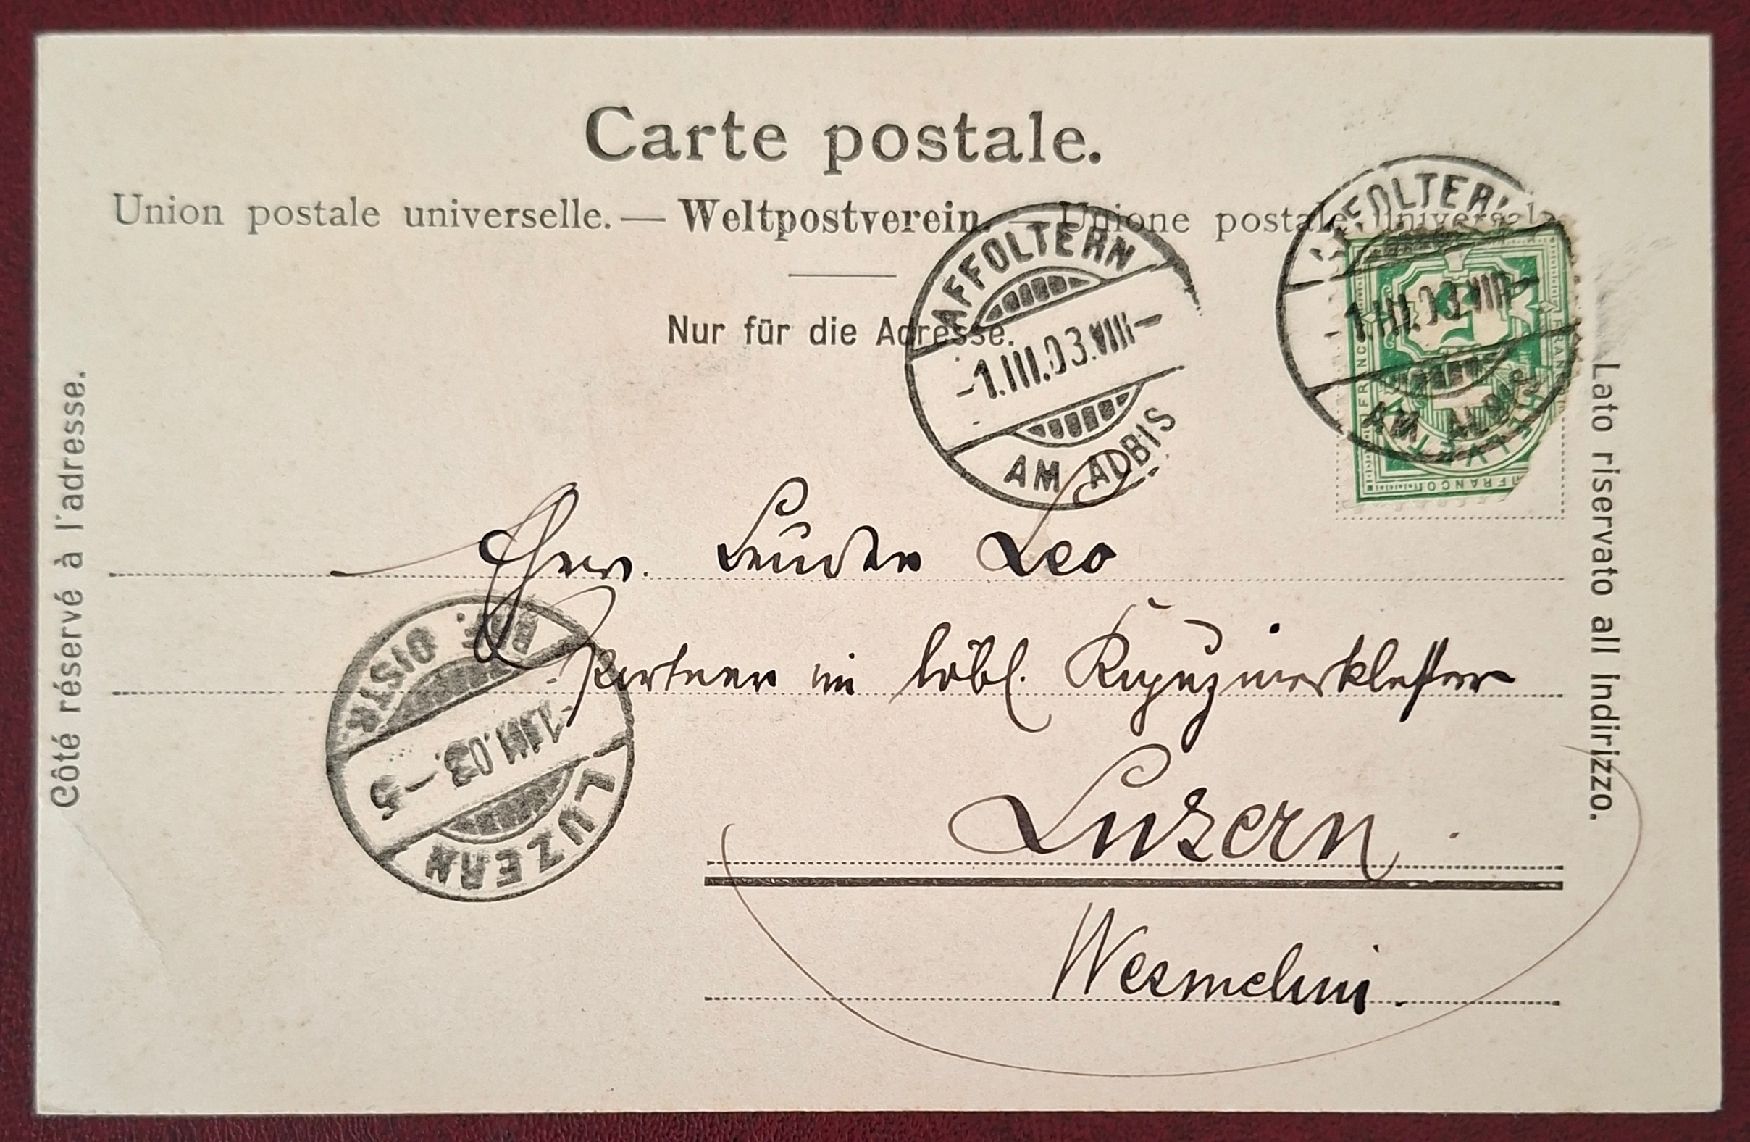 Carte postale.
Union postale universelle. — Weltpostverein. — Unione postale universale
Nur für die Adresse.
Côté réservé à l'adresse.
Lato riservato all indirizzo.
AFFOLTERN
-1.III.03.VIII-
AM ALBIS
AFFOLTERN
-1.III.03.VIII-
AM ALBIS
FRANCO
HELVETIA
Ehrw. Bruder Leo
Portner im löbl. Kapuzinerkloster
Luzern
Wesmelini.
LUZERN
-1.III.03.-5
BRF. DISTR.